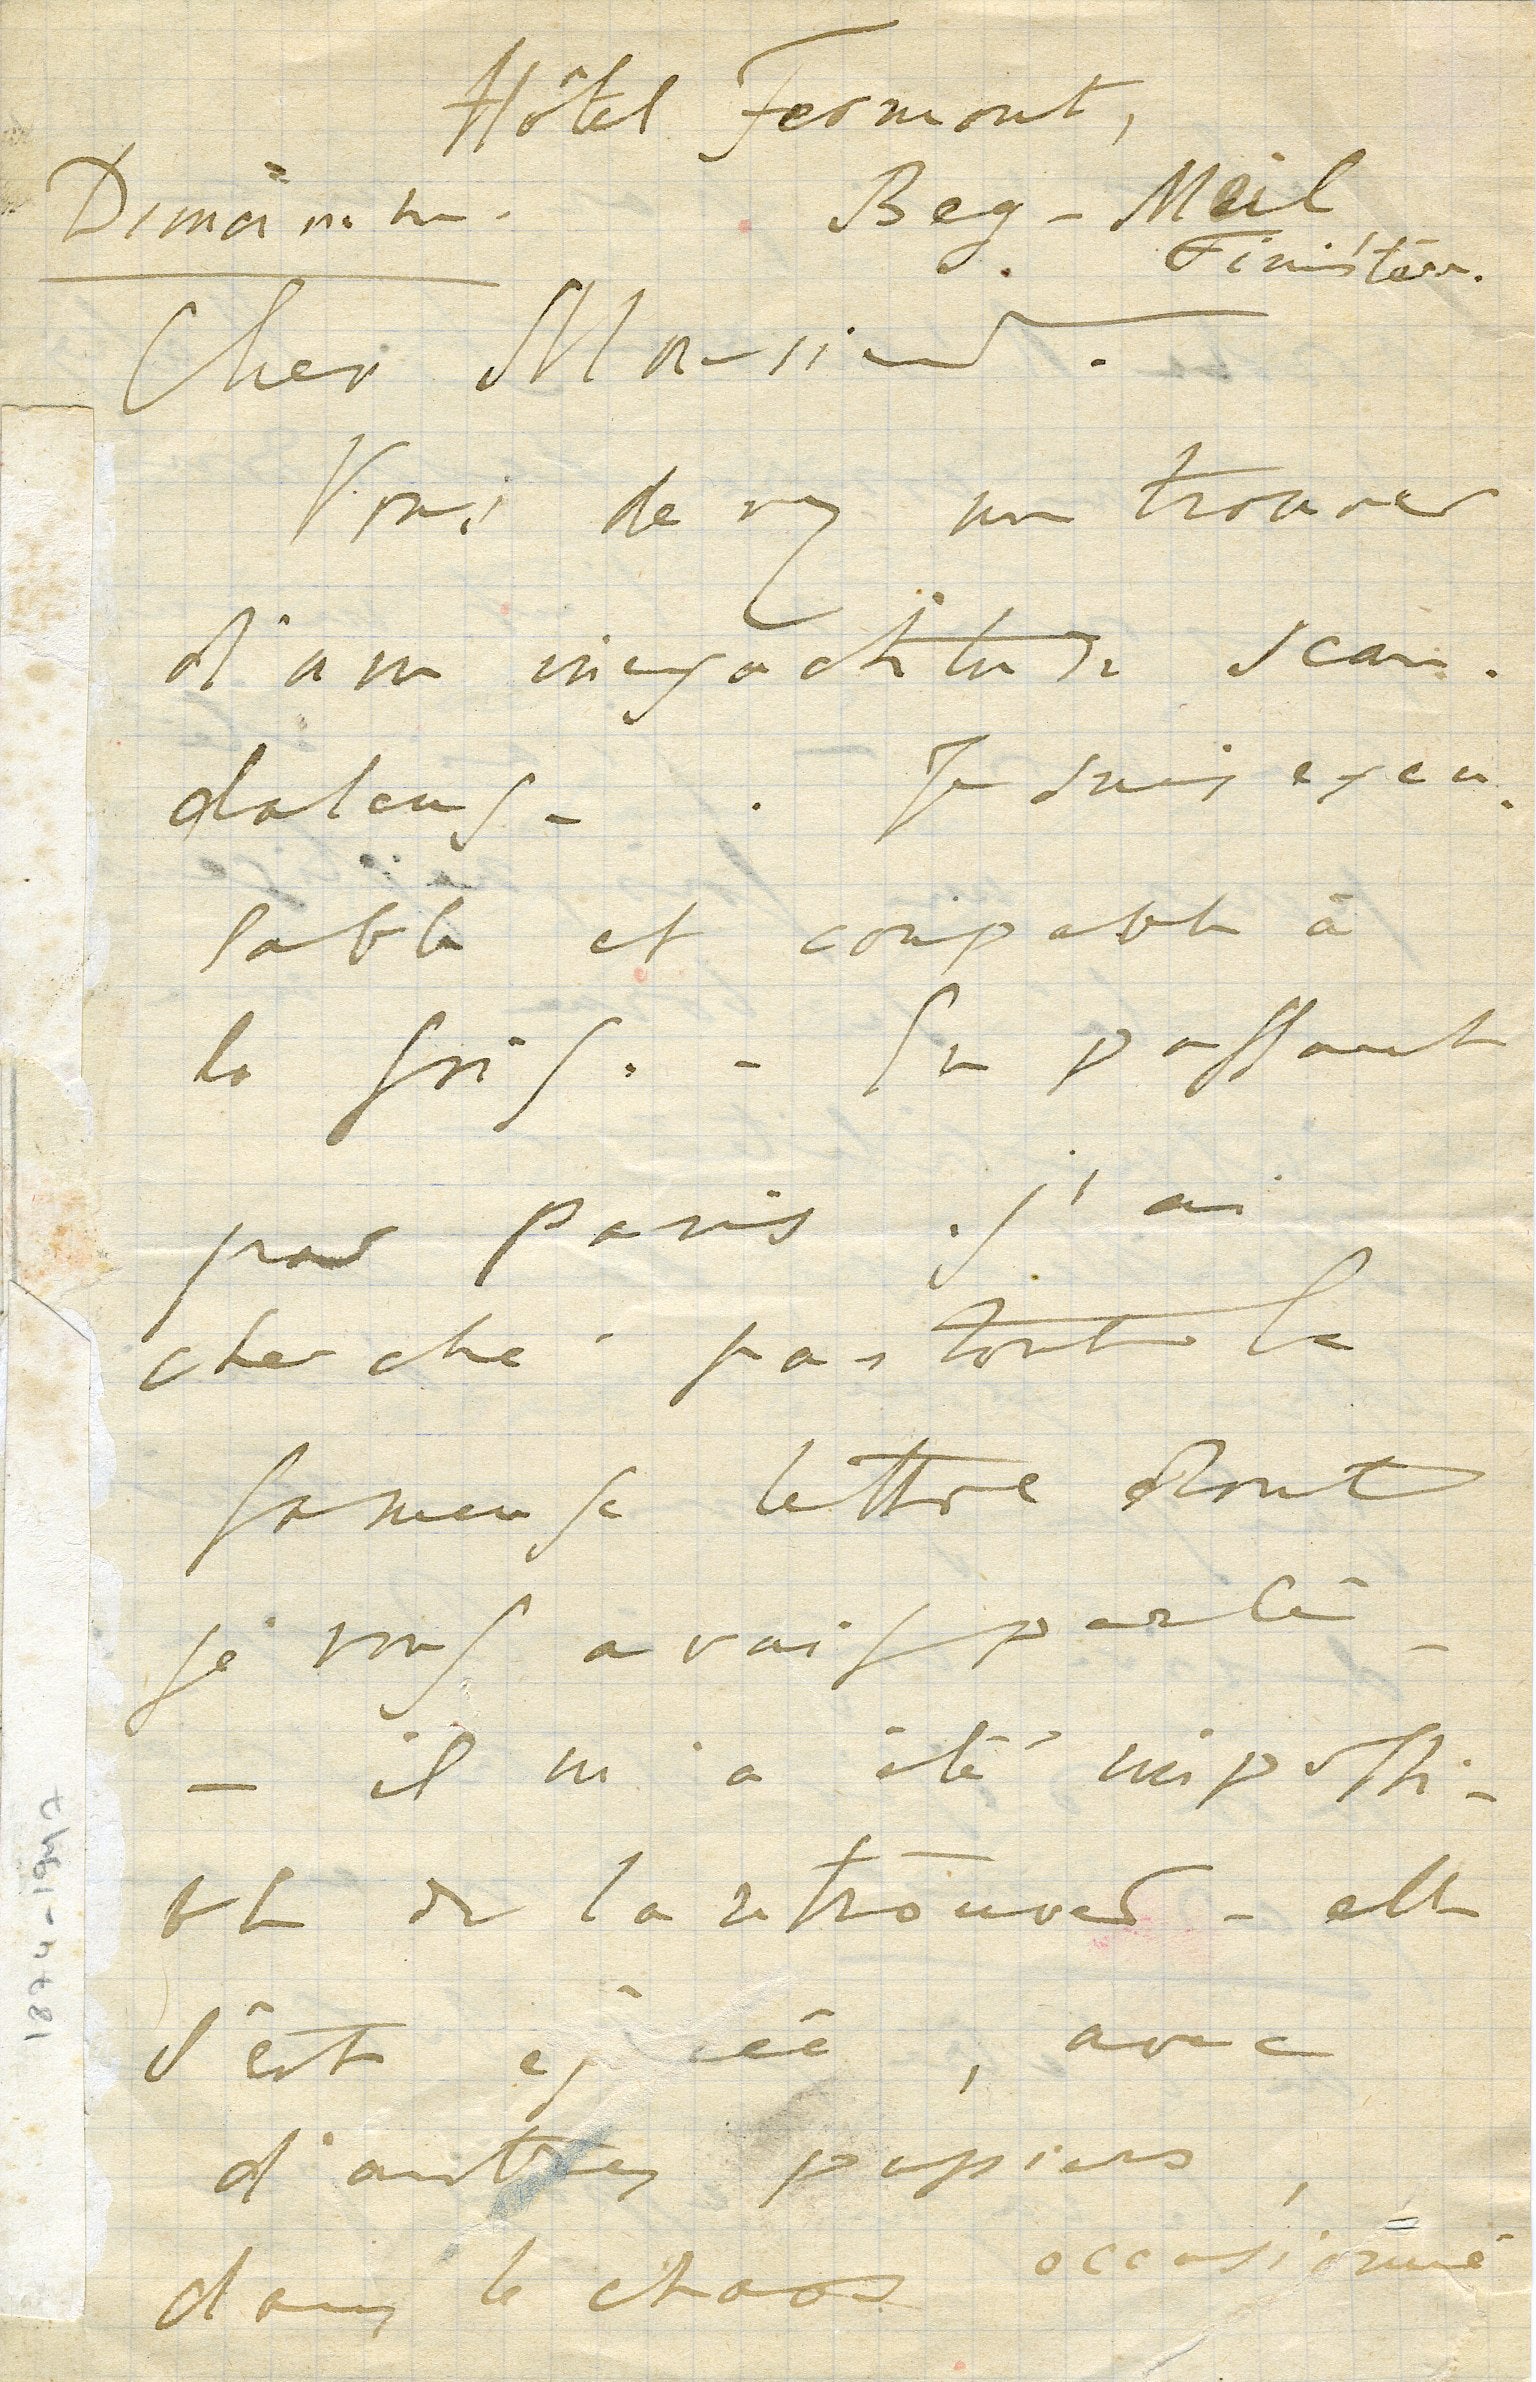 Hôtel Fermont,
Dimanche. Beg-Meil
Finistère.
Cher Monsieur.
Vous devez me trouver
d'une inexactitude scan-
daleuse. Je suis excu-
sable et coupable à
la fois. - En passant
par Paris j'ai
cherché partout la
fameuse lettre dont
je vous avais parlé -
- il m'a été impossi-
ble de la retrouver - elle
s'est égarée, avec
d'autres papiers,
dans le chaos occasionné